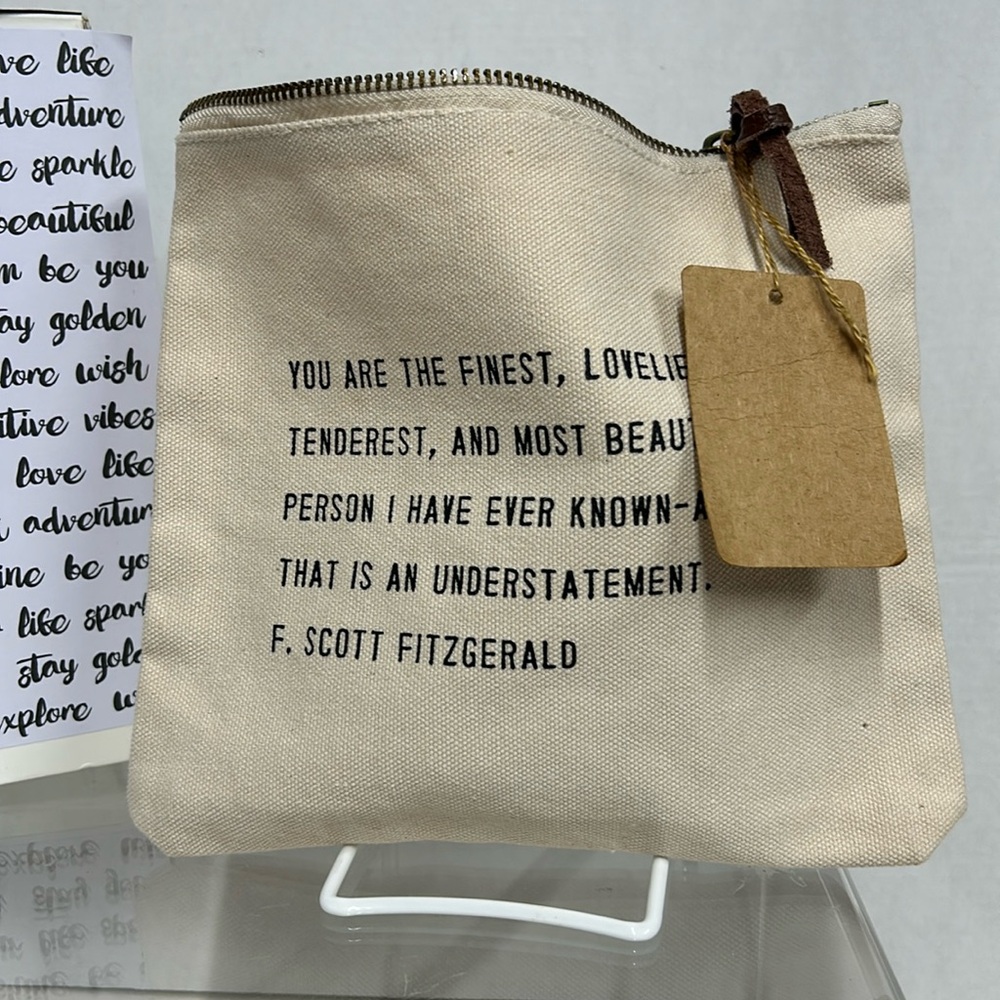 ve life
dventure
e sparkle
beautiful
be you
ay golden
lore wish
itive vibes
love life
adventur
ine be yo
life spark
stay gold
explore w
YOU ARE THE FINEST, LOVELIE
TENDEREST, AND MOST BEAUT
PERSON I HAVE EVER KNOWN-A
THAT IS AN UNDERSTATEMENT.
F. SCOTT FITZGERALD